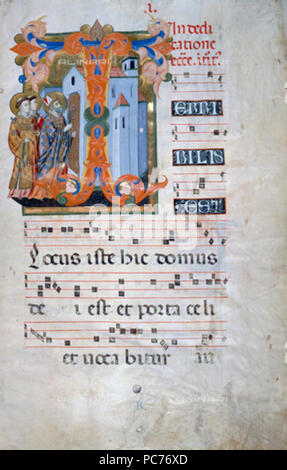 .I.
In dedi
catione
ERRI
BILIS
EST
Locus iste hic domus
de i est et porta celi
et vocabitur
ALINARI
alamy
Image ID: PC76XD
www.alamy.com